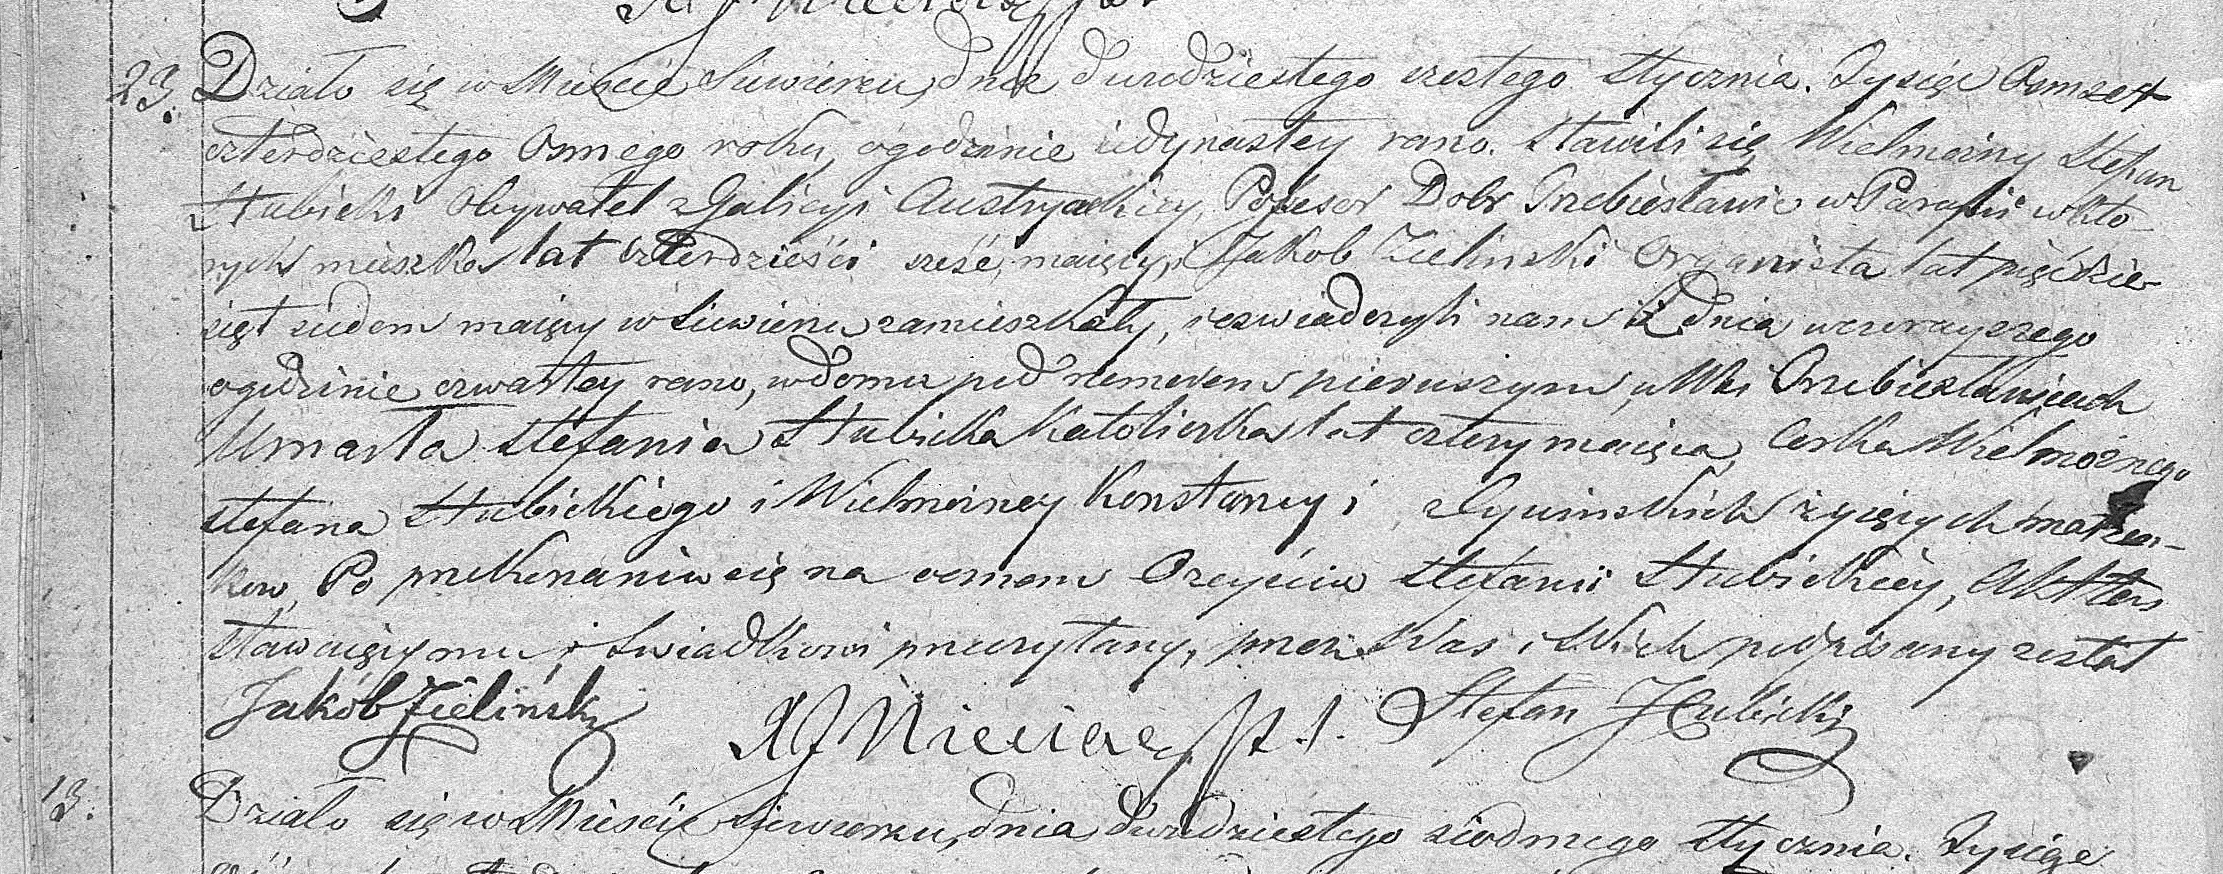 23. Działo się w Mieście Siewierzu, dnia dwudziestego szestego Stycznia. Tysiąc Osmset
czterdziestego Osmego roku, ogodzinie iedynastey rano. Stawili się Wielmożny Stefan
Hubicki Obywatel z Galicyi Austryackiey, Posesor Dobr Trzebiesławic w Parafii w kto-
rych mieszka lat czterdzieści sześć maiący, i Jakob Zielinski Organista lat pięćdzie-
siąt siedem maiący w Siewierzu zamieszkały, i oswiadczyli nam iż dnia wczorayszego
ogodzinie czwartey rano, w domu pod numerem pierwszym, w Wsi Trzebiesławicach
Umarła Stefania Hubicka Katoliczka lat cztery maiąca, Corka Wielmożnego
Stefana Hubickiego i Wielmożney Konstancyi z małżon-
kow, Po przekonaniu się na ocznem Ozeyściu Stefanii Hubickiey, Akt ten
stawaiącymu i Swiadkowi przeczytany, przez Nas i Nich podpisany został
Jakób Zieliński Stefan Hubicki
13. Działo się w Mieście Siewierzu, dnia dwudziestego siodmego Stycznia. Tysiąc